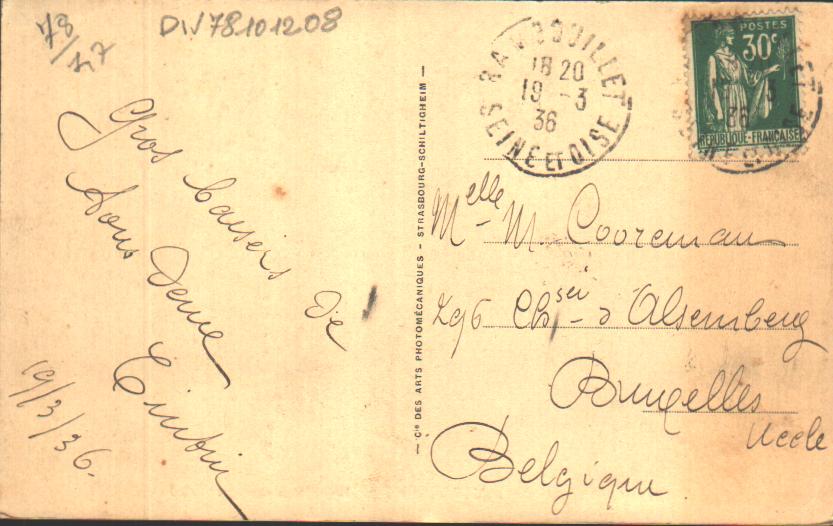 78/37
DIV78.101208
Gros baisers de
tous deux
19/3/36.
— Cie DES ARTS PHOTOMÉCANIQUES - STRASBOURG-SCHILTIGHEIM —
RAMBOUILLET
18 20
19 -3
36
SEINE ET OISE
POSTES
30c
RÉPUBLIQUE-FRANÇAISE
Melle M. Cooreman
296 Chsei d'Alsemberg
Bruxelles
Uccle
Belgique